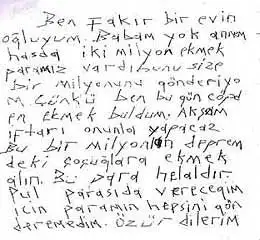 Ben Fakır bir evin
oğluyum. Babam yok annem
hasda iki milyon ekmek
paramız vardıbunu size
bir milyonunu gönderiyo
m. Çünkü ben bu gün cöpd
en ekmek buldum. Akşam
iftarı onunla yapacaz
Bu bir milyonlan deprem
deki çoçuğlara ekmek
alın. Bu para helaldır.
Pul parasıda vereceğim
için paramın hepsini gön
deremedim. Özür dilerim